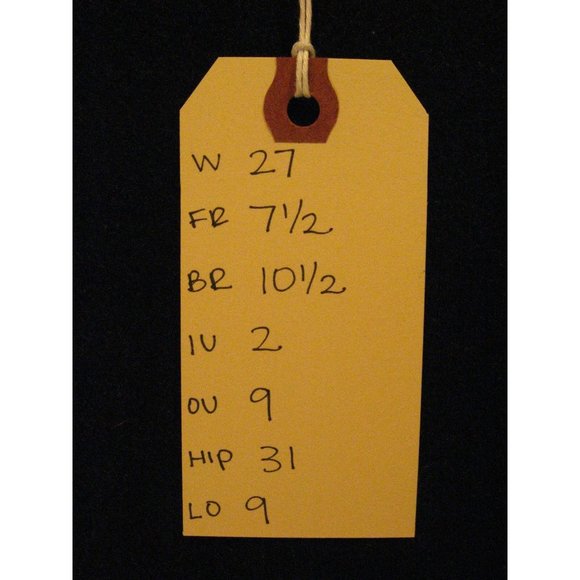 W 27
FR 7 1/2
BR 10 1/2
IU 2
OU 9
HIP 31
LO 9